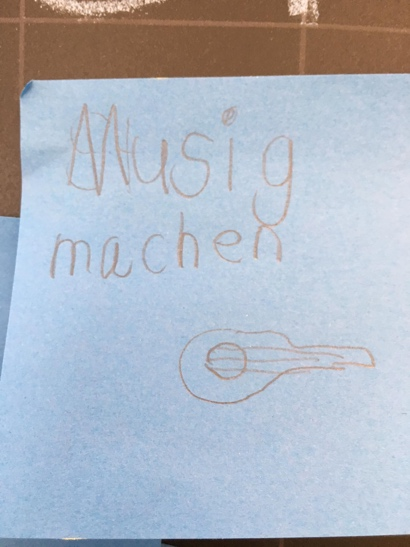 Musig
machen